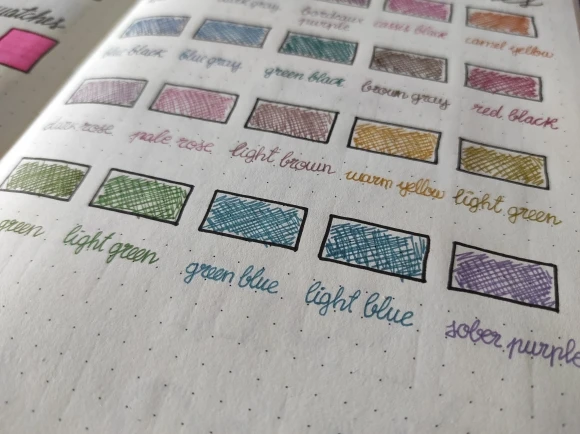 watches
gray
bordeaux
purple
cassis black
camel yellow
blue black
blue gray
green black
brown gray
red black
dark rose
pale rose
light brown
warm yellow
light green
green
light green
green blue
light blue
sober purple